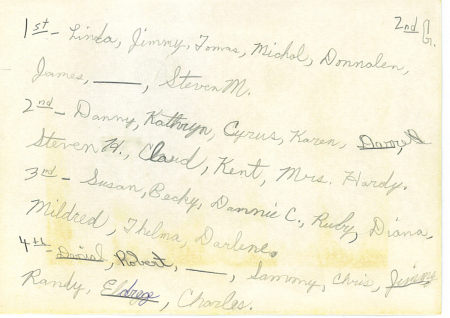 2nd G.
1st - Linda, Jimmy, Tomas, Michol, Donnalen,
James, ____, Steven M.
2nd - Danny, Kathryn, Cyrus, Karen,
Steven H., Claud, Kent, Mrs. Hardy.
3rd - Susan, Becky, Dannie C., Ruby, Diana,
Mildred, Thelma, Darlene.
4th - Daniel, Robert, ____, Sammy, Chris, Jimmy
Randy, Eldrege, Charles.